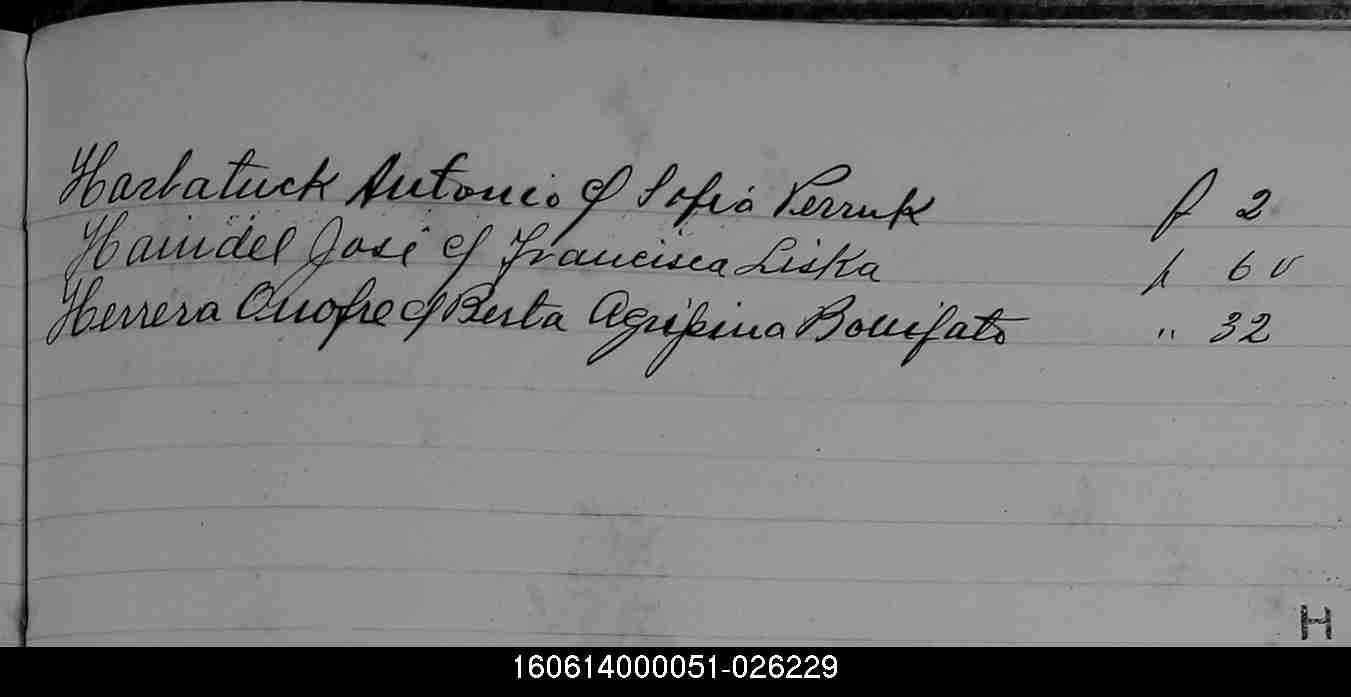 Harbatuck Antonio c/ Sofia Perruk f 2
Haindel José c/ Francisca Liska f 6 v
Herrera Onofre c/ Berta Agripina Bonifato " 32
H
160614000051-026229